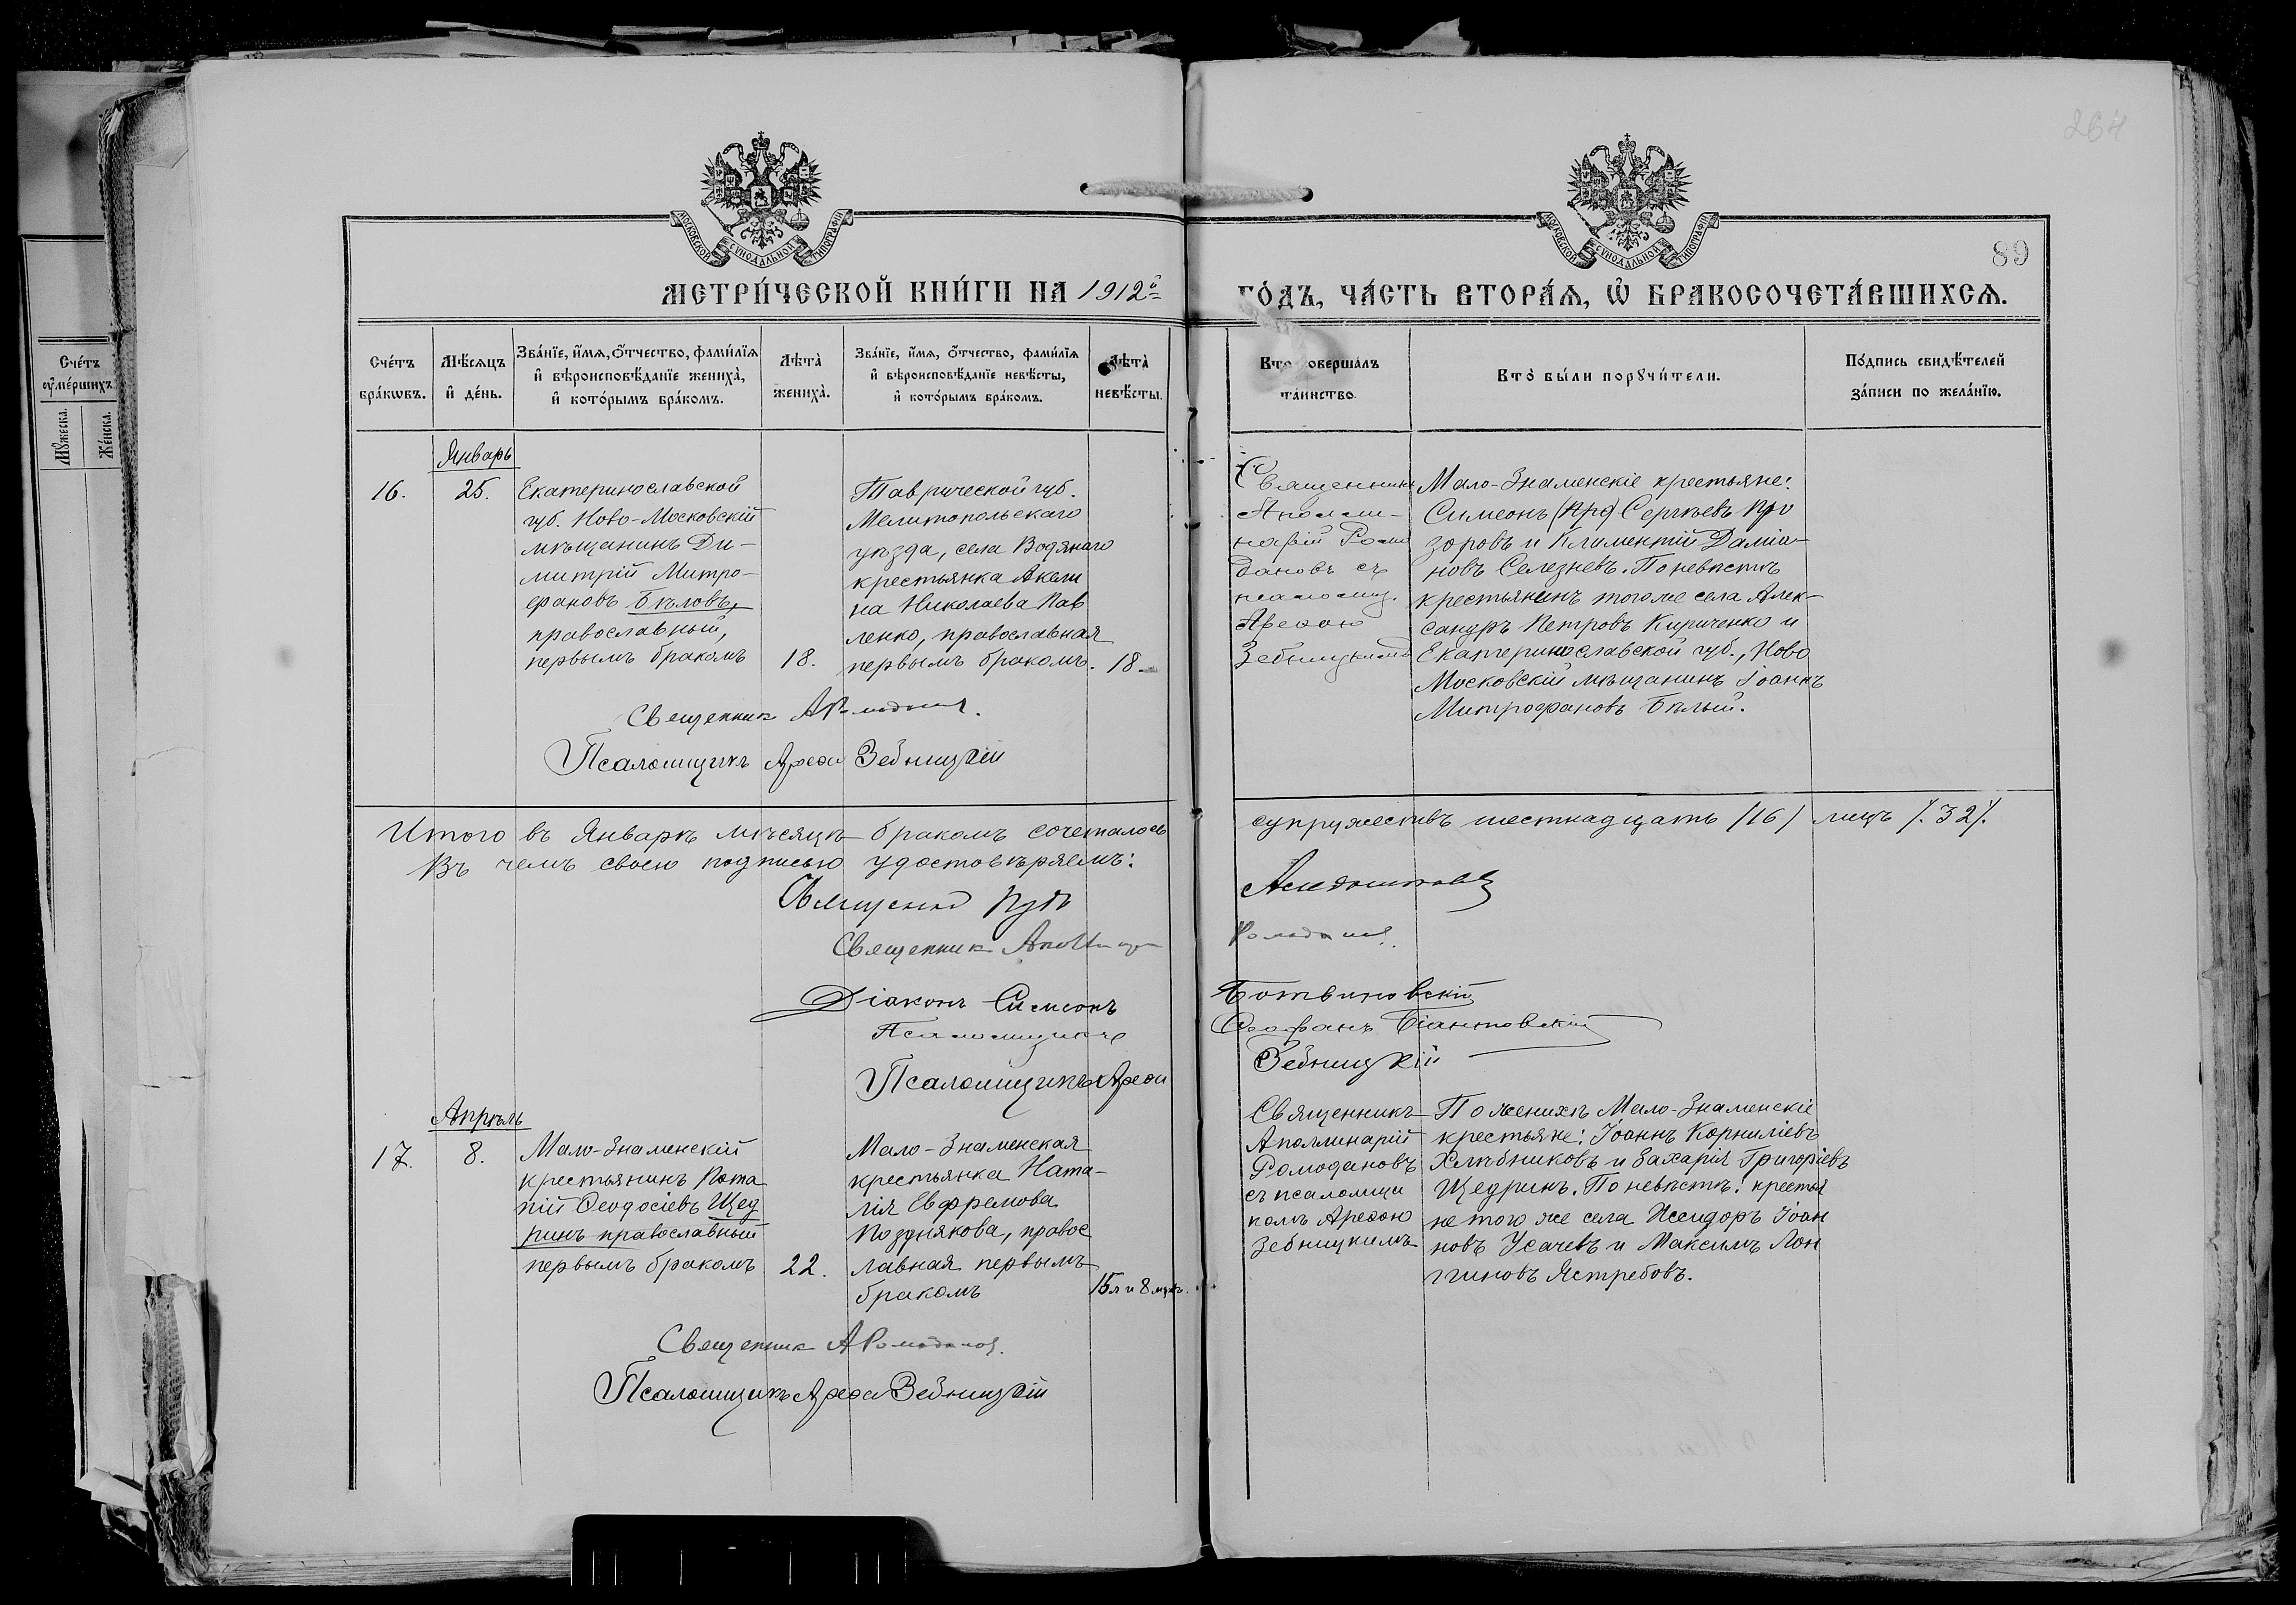 264
МОСКОВСКОЙ СѴНОДАЛЬНОЙ ТИПОГРАФІИ
МОСКОВСКОЙ СѴНОДАЛЬНОЙ ТИПОГРАФІИ
89
МЕТРИ́ЧЕСКОЙ КНИ́ГИ НА 1912й
ГО́ДЪ, ЧА́СТЬ ВТОРА́Я, Ѽ БРАКОСОЧЕТА́ВШИХСЯ.
Сче́тъ ᲂу҆ме́ршихъ.
Мꙋ́жеска.
Же́нска.
Сче́тъ бра́кѡвъ.
Мѣ́сяцъ и҆ де́нь.
Зва́нїе, и҆́мѧ, ѻ҆́тчество, фами́лїѧ
и҆ вѣроисповѣ́данїе жениха̀,
и҆ кото́рымъ бра́комъ.
Лѣта̀ жениха̀.
Зва́нїе, и҆́мѧ, ѻ҆́тчество, фами́лїѧ
и҆ вѣроисповѣ́данїе невѣ́сты,
и҆ кото́рымъ бра́комъ.
Лѣта̀ невѣ́сты.
Кто̀ совершалъ
та́инство.
Кто̀ бы́ли порꙋчи́тели.
По́дпись свидѣ́телей
за́писи по жела́нїю.
Январь
16.
25.
Екатеринославской
губ. Ново-Московскій
мѣщанинъ Ди-
митрій Митро-
фановъ Бѣловъ,
православный,
первымъ бракомъ
18.
Таврической губ.
Мелитопольскаго
уѣзда, села Водянаго
крестьянка Акели
на Николаева Пав
ленко, православная
первымъ бракомъ.
18
Священникъ
Аполли-
нарій Ромо
дановъ съ
псаломщ.
Арефою
Зебницкимъ
Мало-Знаменскіе крестьяне:
Симеонъ (Про) Сергѣевъ Про
зоровъ и Климентій Даміа-
новъ Селезневъ. По невѣстѣ
крестьянинъ того же села Алек-
сандръ Петровъ Кириченко и
Екатеринославской губ., Ново
Московскій мѣщанинъ Іоаннъ
Митрофановъ Бѣлый.
Священникъ А Ромодановъ.
Псаломщикъ Арефа Зебницкій
Итого въ Январѣ мѣсяцѣ бракомъ сочеталось
супружествъ шестнадцать /16/ лицъ /.32/.
Въ чемъ своею подписью удостовѣряемъ:
Священникъ
Священникъ Аполлинарій
Ромодановъ.
Діаконъ Симеонъ
Ботвиновскій
Псаломщикъ
Ѳеофанъ
Псаломщикъ Арефа
Зебницкій
Апрѣль
17.
8.
Мало-Знаменскій
крестьянинъ Пота
пій Ѳеодосіевъ Щед
ринъ православный
первымъ бракомъ
22.
Мало-Знаменская
крестьянка Ната-
лія Евфремова
Позднякова, правос
лавная первымъ
бракомъ
15 л и 8 мѣс.
Священникъ
Аполлинарій
Ромодановъ
съ псаломщи
комъ Арефою
Зебницкимъ
По женихѣ Мало-Знаменскіе
крестьяне: Іоаннъ Корниліевъ
Хлѣбниковъ и Захарія Григоріевъ
Щедринъ. По невѣстѣ: крестья
не того же села Исидоръ Іоан
новъ Усачевъ и Максимъ Лон
гиновъ Ястребовъ.
Священникъ А Ромодановъ.
Псаломщикъ Арефа Зебницкій